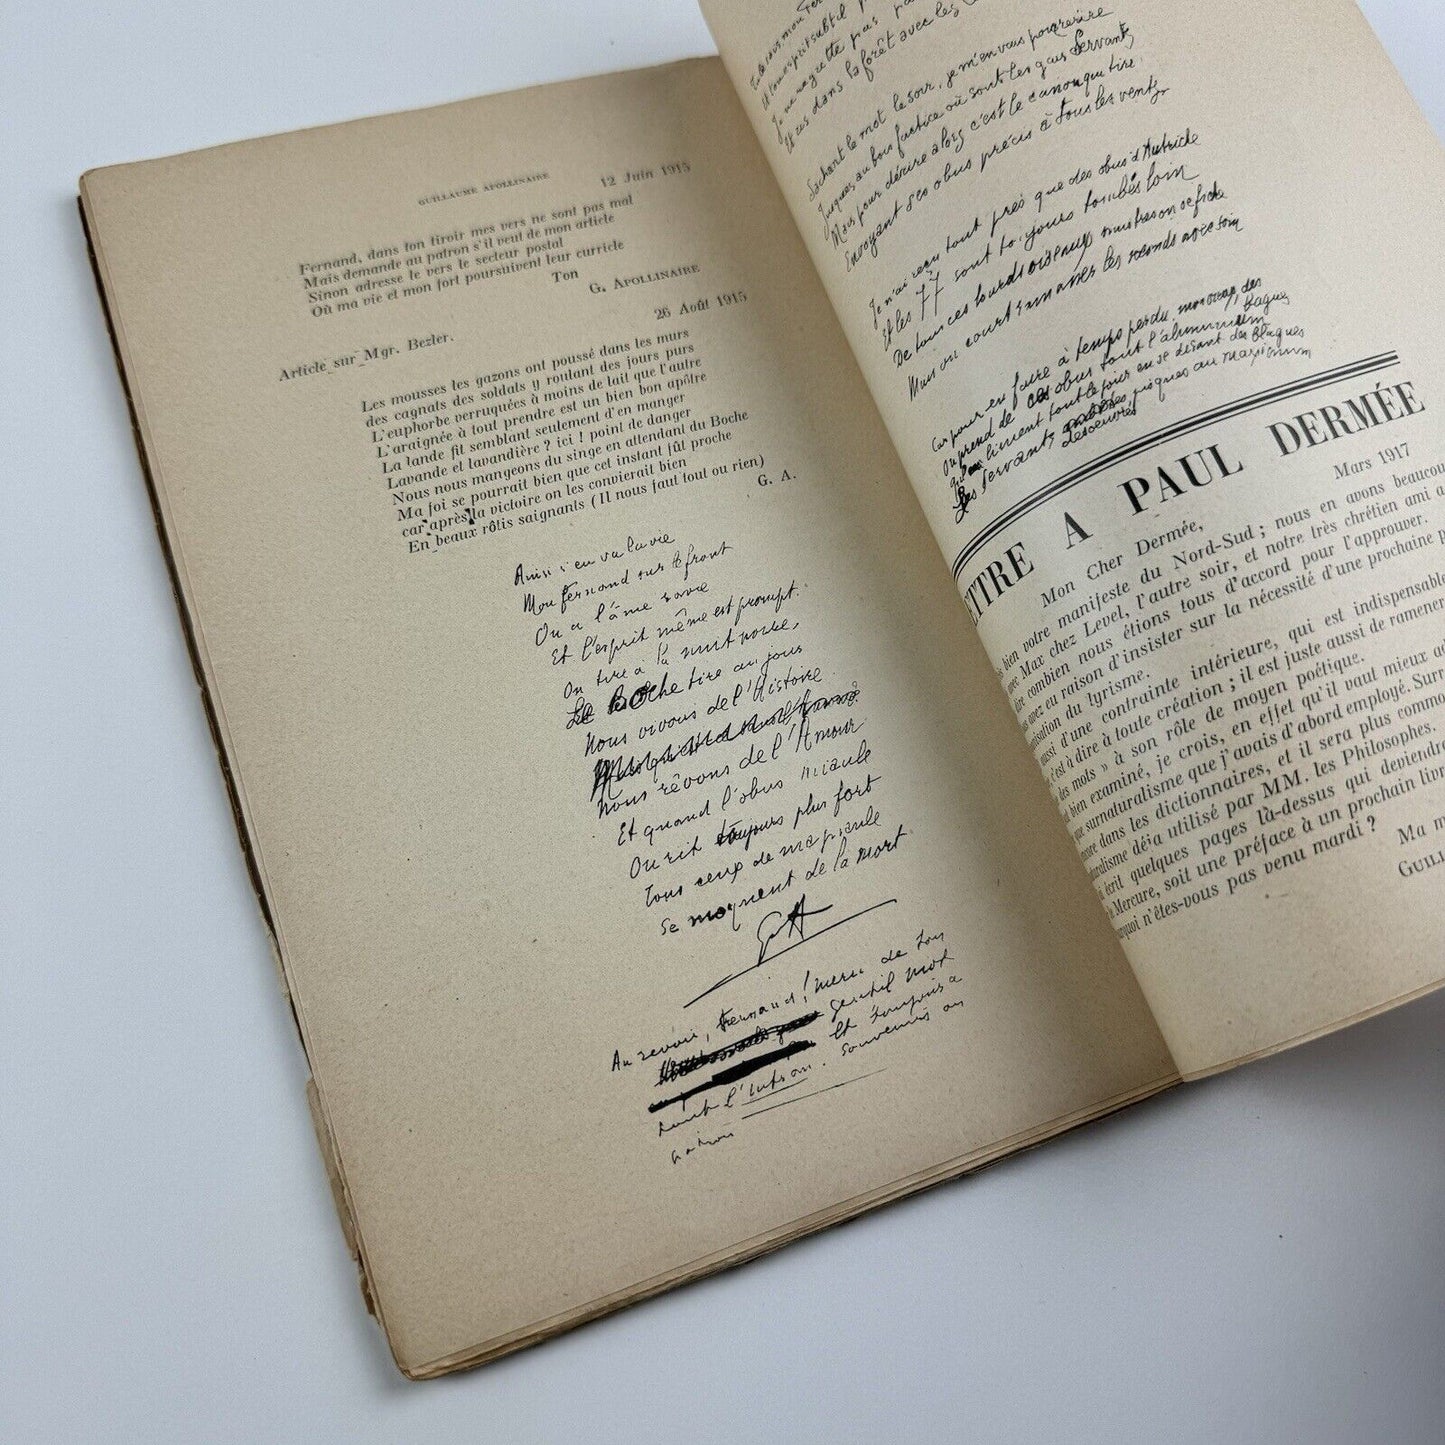 GUILLAUME APOLLINAIRE
12 Juin 1915
Fernand, dans ton tiroir mes vers ne sont pas mal
Mais demande au patron s'il veut de mon article
Sinon adresse le vers le secteur postal
Où ma vie et mon fort poursuivent leur curricle
Ton
G. APOLLINAIRE
26 Août 1915
Article sur Mgr. Bezler.
Les mousses les gazons ont poussé dans les murs
des cagnats des soldats y roulant des jours purs
L'euphorbe verruquées à moins de lait que l'autre
L'araignée à tout prendre est un bien bon apôtre
La lande fil semblant seulement d'en manger
Lavande et lavandière ? ici ! point de danger
Nous nous mangeons du singe en attendant du Boche
Ma foi se pourrait bien que cet instant fût proche
car après la victoire on les convierait bien
En beaux rôtis saignants (Il nous faut tout ou rien)
G. A.
Ainsi s'en va la vie
Mon Fernand sur le front
On a l'âme ravie
Et l'esprit même est prompt.
On tire à la nuit noire,
Le Boche tire au jour
Nous vivons de l'Histoire
Nous rêvons de l'Amour
Et quand l'obus miaule
On rit toujours plus fort
Tous ceux de ma piaule
Se moquent de la mort
Au revoir, Fernand ! merci de ton
gentil mot
Et toujours à
souvenirs
et ton esprit subtil
Je ne regrette pas
Et ces dans la forêt avec les
Sachant le mot le soir, je m'en vais pour rire
Jusques au bois factice où sont les gais Servants
Mais pour dérire alors c'est le canon qui tire
Envoyant ses obus précis à tous les vents
Je n'ai reçu tout près que des obus d'Autriche
Et les 77 sont toujours tombés loin
De tous ces lourds oiseaux nous tres on se fiche
Mais on court ramasser les seconds avec soin
Car pour en faire à temps perdu, mon cop, des bagues
On prend de ces obus tout l'aluminium
Qu'on liment tout le jour en se disant des blagues
Les servants risques au maximum
desoeuvrés
ETTRE A PAUL DERMÉE
Mars 1917
Mon Cher Dermée,
bien votre manifeste du Nord-Sud ; nous en avons beaucoup
Max chez Level, l'autre soir, et notre très chrétien ami a
dire combien nous étions tous d'accord pour l'approuver.
avez eu raison d'insister sur la nécessité d'une prochaine
du lyrisme.
aussi d'une contrainte intérieure, qui est indispensable
c'est à dire à toute création ; il est juste aussi de ramener
des mots » à son rôle de moyen poétique.
bien examiné, je crois, en effet qu'il vaut mieux
que surnaturalisme que j'avais d'abord employé.
encore dans les dictionnaires, et il sera plus
déjà utilisé par MM. les Philosophes.
écrit quelques pages là-dessus qui deviendra
Mercure, soit une préface à un prochain livr
n'êtes-vous pas venu mardi ?
Ma m
GUILL